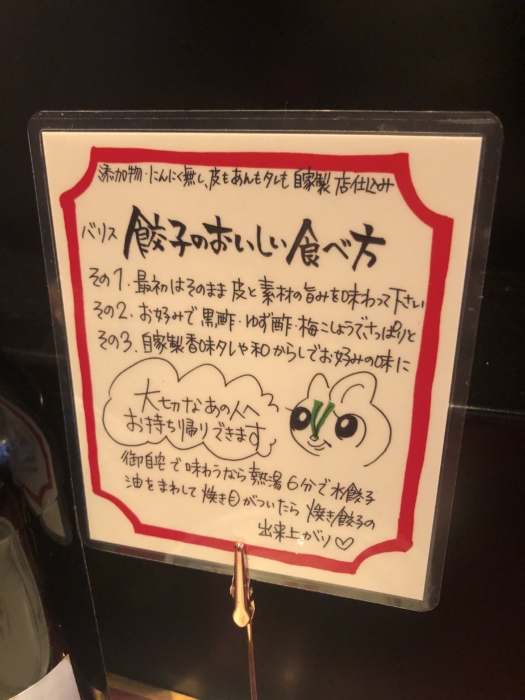 添加物・にんにく無し、皮もあんもタレも自家製 店仕込み
バリス 餃子のおいしい食べ方
その1. 最初はそのまま皮と素材の旨みを味わって下さい
その2. お好みで黒酢・ゆず酢・梅こしょうでさっぱりと
その3. 自家製香味タレや和からしでお好みの味に
大切なあの人へ
お持ち帰りできます
御自宅で味わうなら熱湯6分で水餃子
油をまわして焼き目がついたら焼き餃子の
出来上がり♡